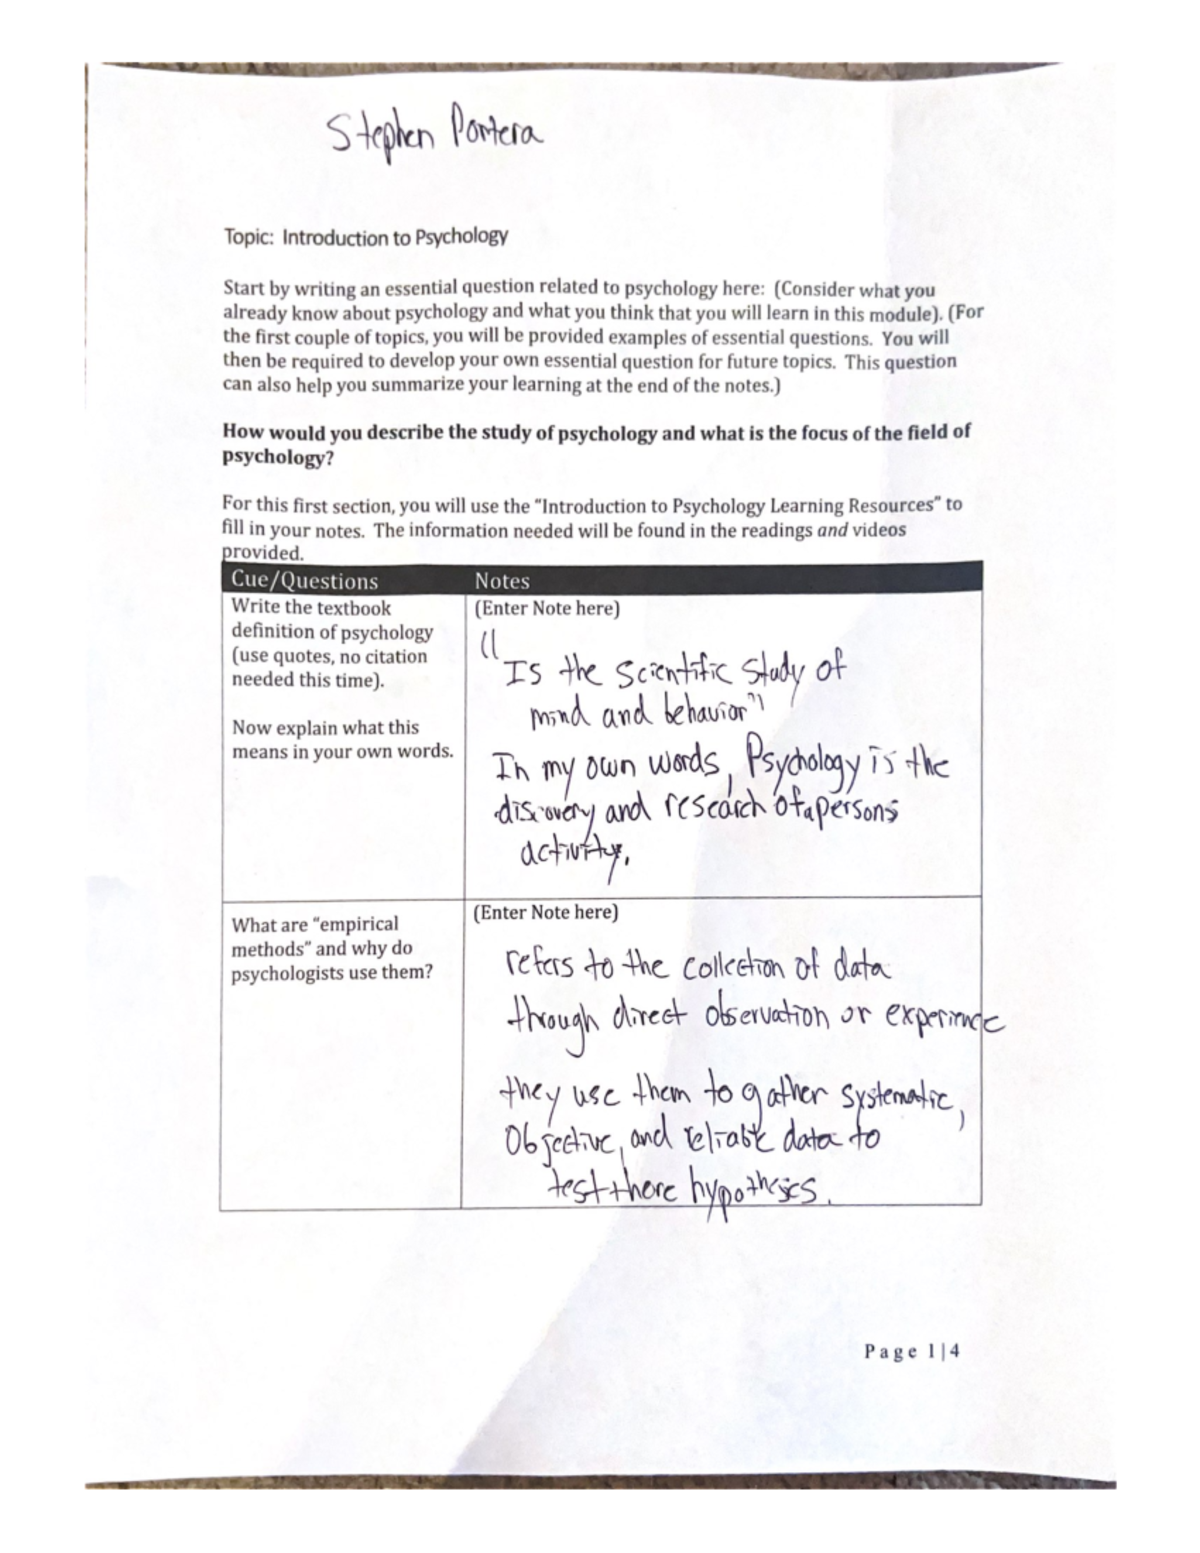 Stephen Pontera
Topic: Introduction to Psychology
Start by writing an essential question related to psychology here: (Consider what you
already know about psychology and what you think that you will learn in this module). (For
the first couple of topics, you will be provided examples of essential questions. You will
then be required to develop your own essential question for future topics. This question
can also help you summarize your learning at the end of the notes.)
How would you describe the study of psychology and what is the focus of the field of
psychology?
For this first section, you will use the "Introduction to Psychology Learning Resources" to
fill in your notes. The information needed will be found in the readings and videos
provided.
Cue/Questions
Notes
Write the textbook
definition of psychology
(use quotes, no citation
needed this time).
Now explain what this
means in your own words.
(Enter Note here)
"Is the scientific study of
mind and behavior"
In my own words, Psychology is the
discovery and research of a persons
activity.
What are "empirical
methods" and why do
psychologists use them?
(Enter Note here)
refers to the collection of data
through direct observation or experience
they use them to gather systematic,
Objective, and reliable data to
test there hypotheses.
Page 1|4